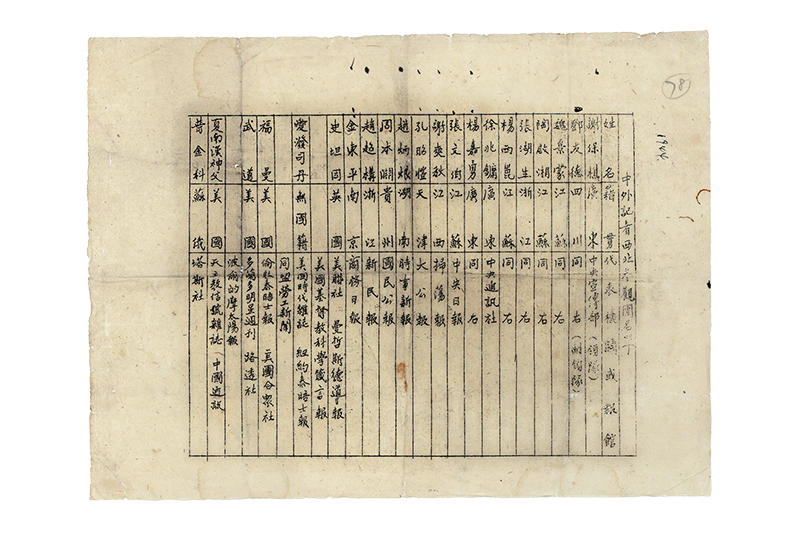 中外記者西北參觀團名單
姓 名 籍 貫 代 表 機 關 或 報 館
謝保樵 廣 東 中央宣傳部（領隊）
鄧友德 四 川 同 右（副領隊）
魏景蒙 江 蘇 同 右
陶啟湘 江 蘇 同 右
張湖生 浙 江 同 右
楊西崑 江 蘇 同 右
徐兆鏞 廣 東 中央通訊社
楊嘉勇 廣 東 同 右
張文伯 江 蘇 中央日報
謝爽秋 江 西 掃蕩報
孔昭愷 天 津 大公報
趙炳烺 湖 南 時事新報
周本淵 貴 州 國民公報
趙超構 浙 江 新民報
金東平 南 京 商務日報
史坦因 英 國 美聯社 曼哲斯德導報
美國基督教科學箴言報
愛潑司丹 無國籍 美國時代雜誌 紐約泰晤士報
同盟勞工新聞
福 曼 美 國 倫敦泰晤士報 美國合眾社
武 道 美 國 多倫多明星週刊 路透社
波爾的摩太陽報
夏南漢神父 美 國 天主教信號雜誌（中國通訊
普金科 蘇 俄 塔斯社
78
1944